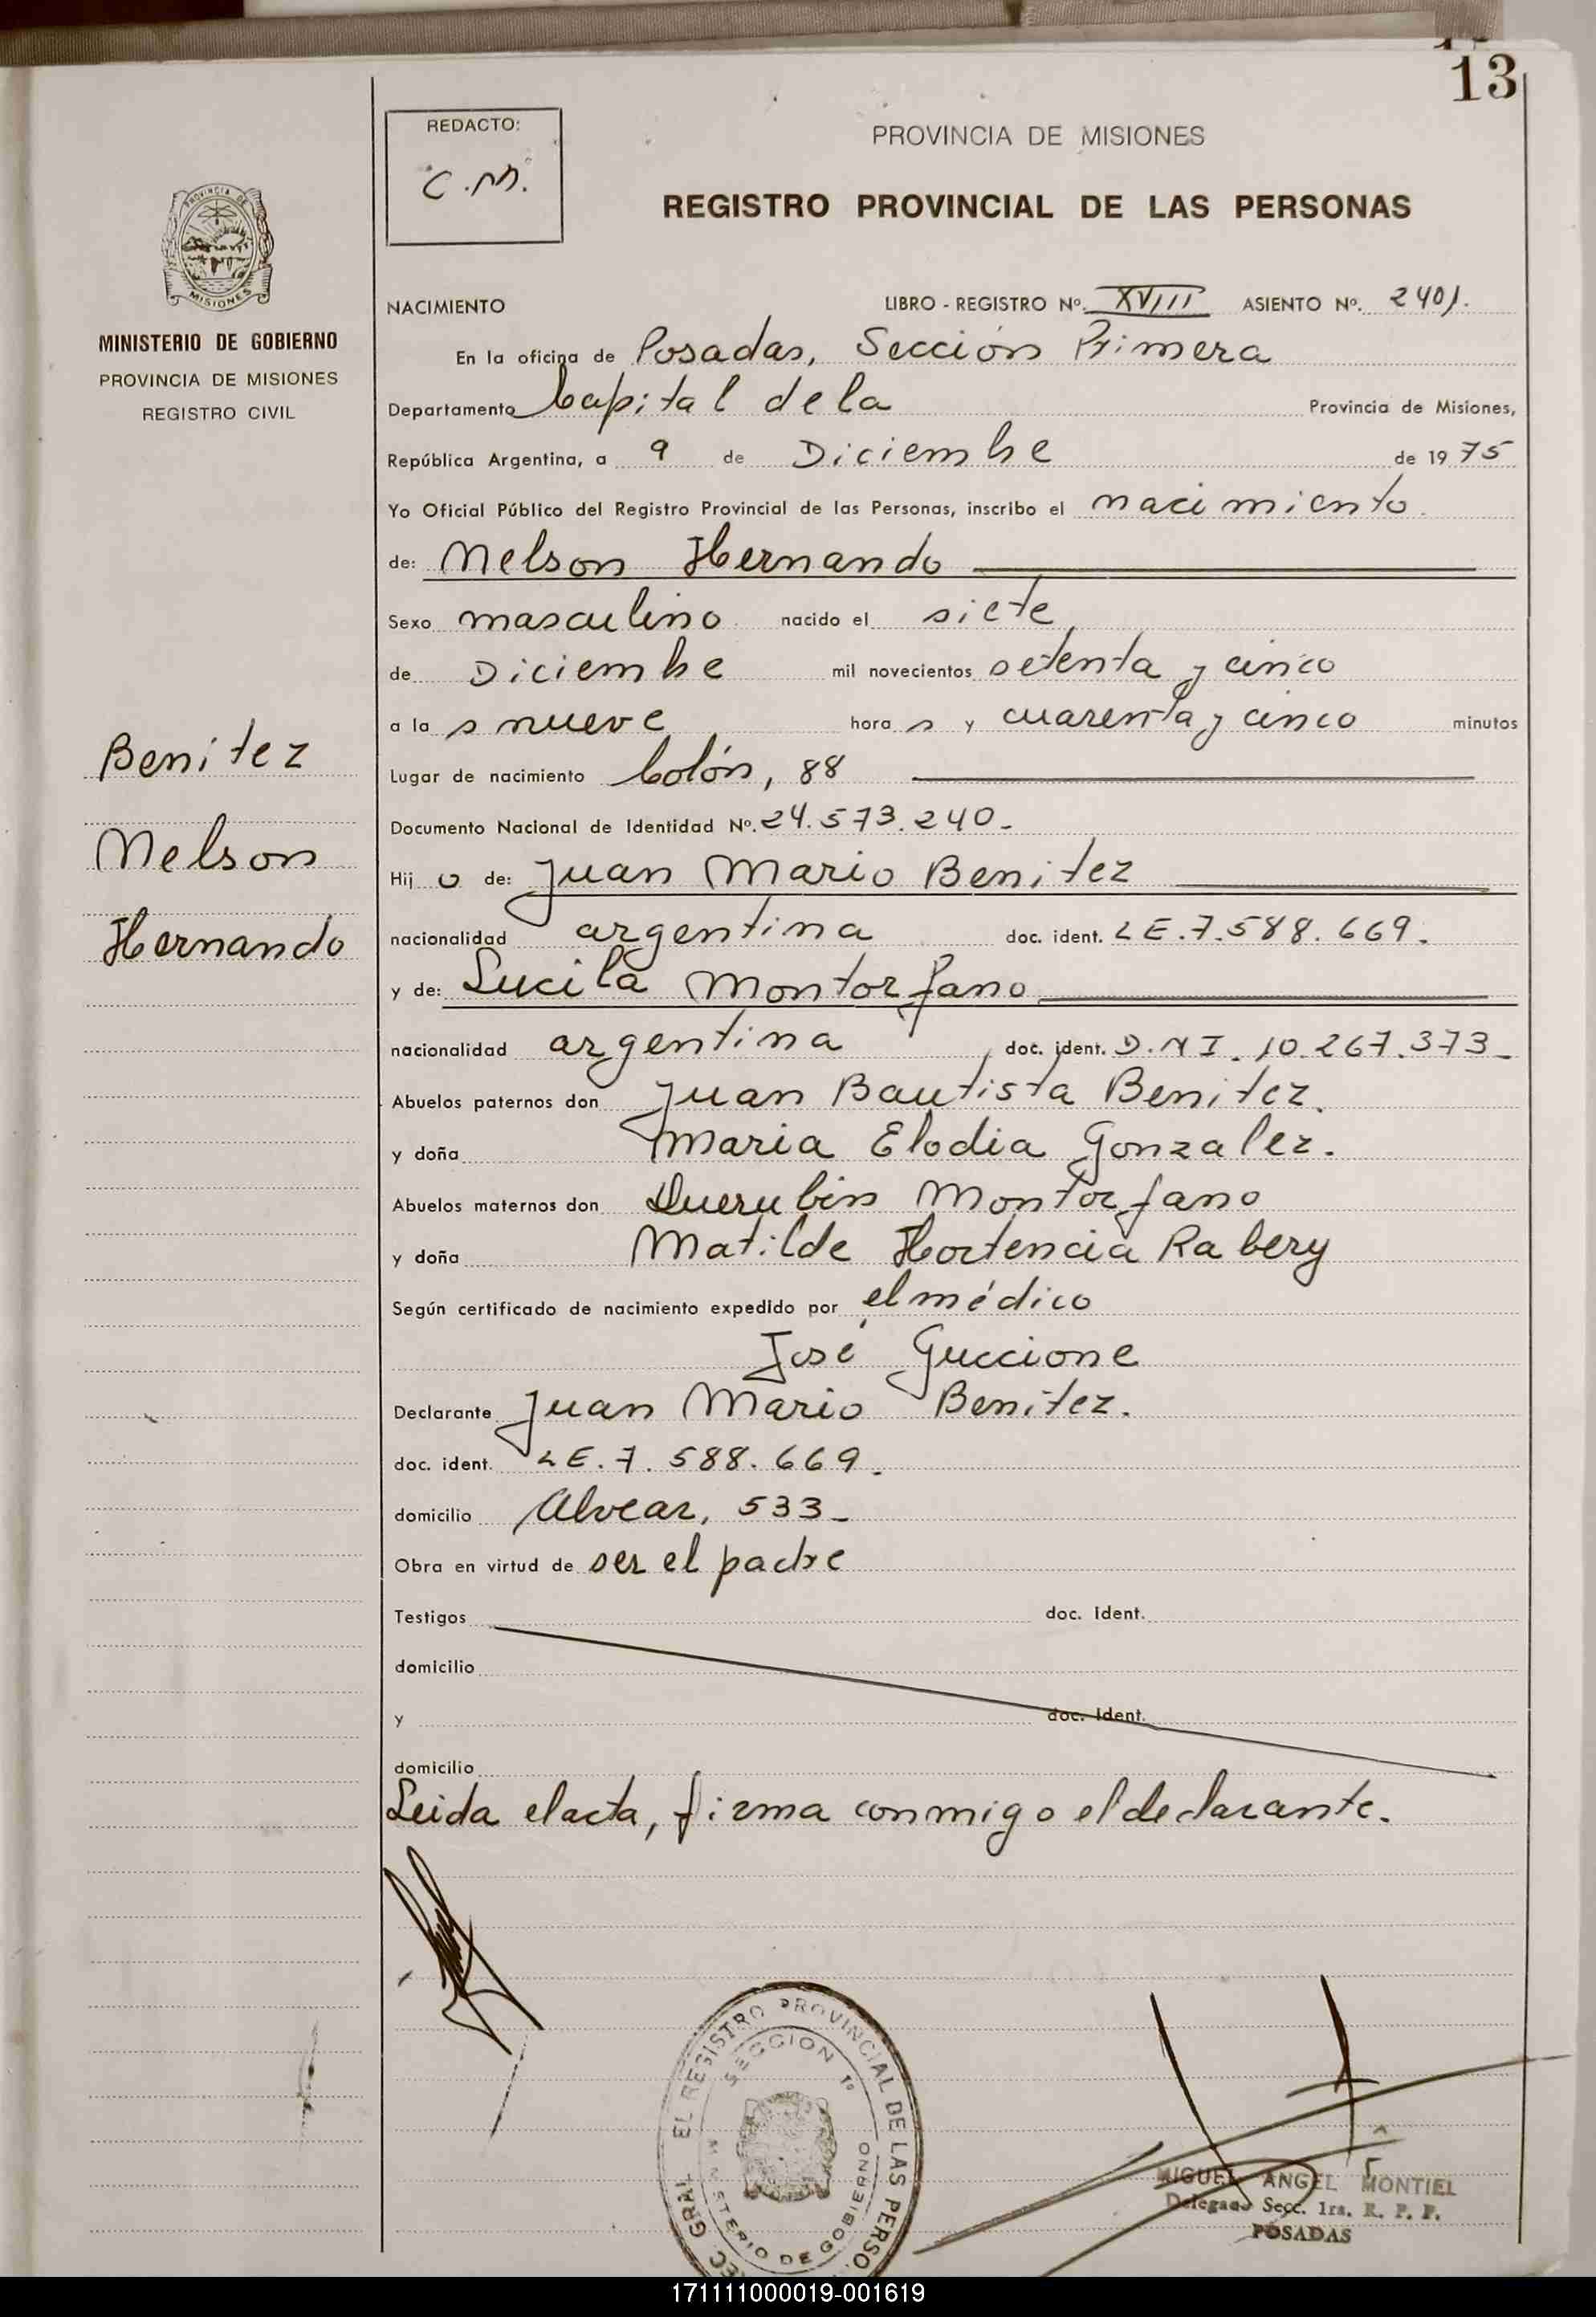 13
REDACTO:
C.M.
PROVINCIA DE MISIONES
REGISTRO PROVINCIAL DE LAS PERSONAS
PROVINCIA DE
MISIONES
MINISTERIO DE GOBIERNO
PROVINCIA DE MISIONES
REGISTRO CIVIL
NACIMIENTO LIBRO - REGISTRO Nº. XVIII ASIENTO Nº. 2401.
En la oficina de Posadas, Sección Primera
Departamento Capital de la Provincia de Misiones,
República Argentina, a 9 de Diciembre de 1975
Yo Oficial Público del Registro Provincial de las Personas, inscribo el nacimiento
de: Nelson Hernando
Sexo masculino nacido el siete
de Diciembre mil novecientos setenta y cinco
a la s nueve hora s y cuarenta y cinco minutos
Lugar de nacimiento Colón, 88
Documento Nacional de Identidad Nº. 24.573.240-
Hij o de: Juan Mario Benitez
nacionalidad argentina doc. ident. LE.7.588.669.
y de: Lucila Montorfano
nacionalidad argentina doc. ident. D.N I. 10.267.373-
Abuelos paternos don Juan Bautista Benitez.
y doña Maria Elodia Gonzalez.
Abuelos maternos don Querubin Montorfano
y doña Matilde Hortencia Rabery
Según certificado de nacimiento expedido por el médico
José Guccione
Declarante Juan Mario Benitez.
doc. ident. LE.7.588.669.
domicilio Alvear, 533-
Obra en virtud de ser el padre
Testigos doc. Ident.
domicilio
y doc. Ident.
domicilio
Leida el acta, firma conmigo el declarante.
Benitez
Nelson
Hernando
EL REGISTRO PROVINCIAL DE LAS PERSO.
SECCION 1º
MINISTERIO DE GOBIERNO
GRAL
MIGUEL ANGEL MONTIEL
Delegado Secc. 1ra. R. P. P.
POSADAS
171111000019-001619